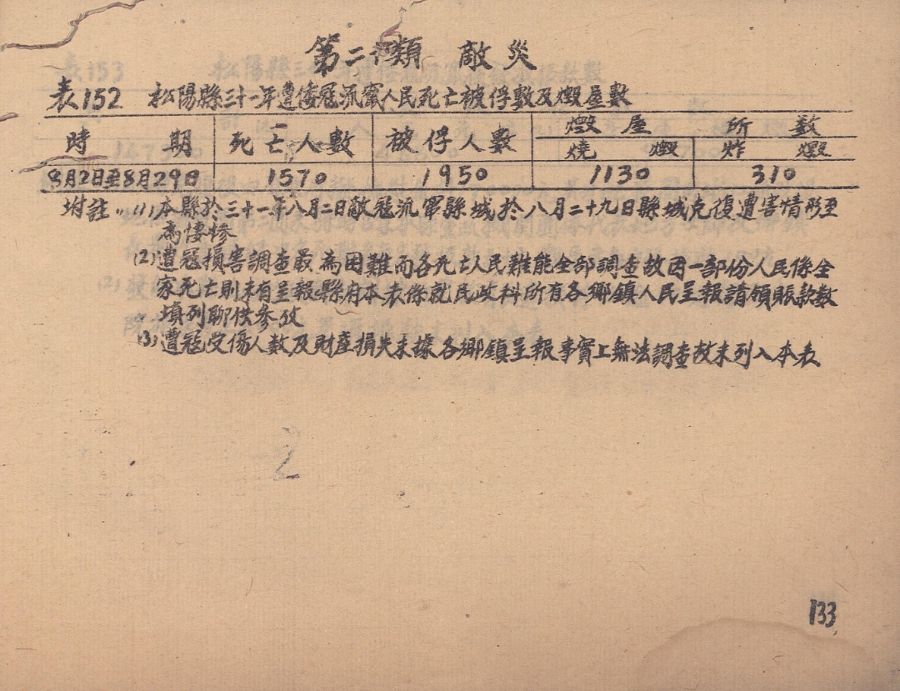 第二十類 敵災
表152 松陽縣三十一年遭倭寇流竄人民死亡被俘數及燬屋數
時期 死亡人數 被俘人數 燬屋所數
燒燬 炸燬
8月2日至8月29日 1570 1950 1130 310
附註：(1)本縣於三十一年八月二日敵寇流軍縣城於八月二十九日縣城克復遭害情形至
為悽慘
(2)遭寇損害調查最為困難而各死亡人民難能全部調查故因一部份人民係全
家死亡則未有呈報縣府本表係就民政科所有各鄉鎮人民呈報請領賑款數
填列聊供參攷
(3)遭寇受傷人数及財產損失未據各鄉鎮呈報事實上無法調查故未列入本表
133